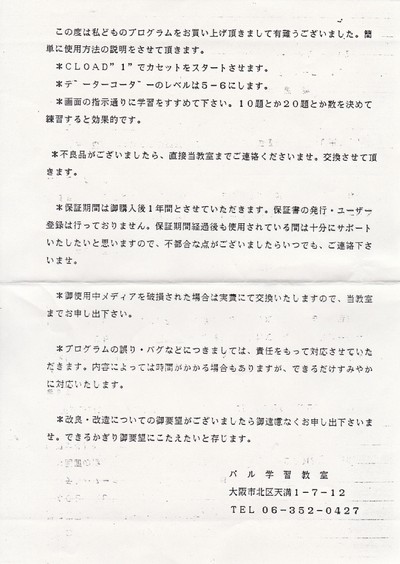 この度は私どものプログラムをお買い上げ頂きまして有難うございました。簡
単に使用方法の説明をさせて頂きます。
＊ＣＬＯＡＤ”１”でカセットをスタートさせます。
＊データーコーダーのレベルは５－６にします。
＊画面の指示通りに学習をすすめて下さい。１０題とか２０題とか数を決めて
練習すると効果的です。
＊不良品がございましたら、直接当教室までご連絡くださいませ。交換させて頂
きます。
＊保証期間は御購入後１年間とさせていただきます。保証書の発行・ユーザー
登録は行っておりません。保証期間経過後も使用されている間は十分にサポート
いたしたいと思いますので、不都合な点がございましたらいつでも、ご連絡下さ
いませ。
＊御使用中メディアを破損された場合は実費にて交換いたしますので、当教室
までお申し出下さい。
＊プログラムの誤り・バグなどにつきましては、責任をもって対応させていた
だきます。内容によっては時間がかかる場合もありますが、できるだけすみやか
に対応いたします。
＊改良・改造についての御要望がございましたら御遠慮なくお申し出下さいま
せ。できるかぎり御要望にこたえたいと存じます。
パル学習教室
大阪市北区天満１－７－１２
ＴＥＬ ０６－３５２－０４２７